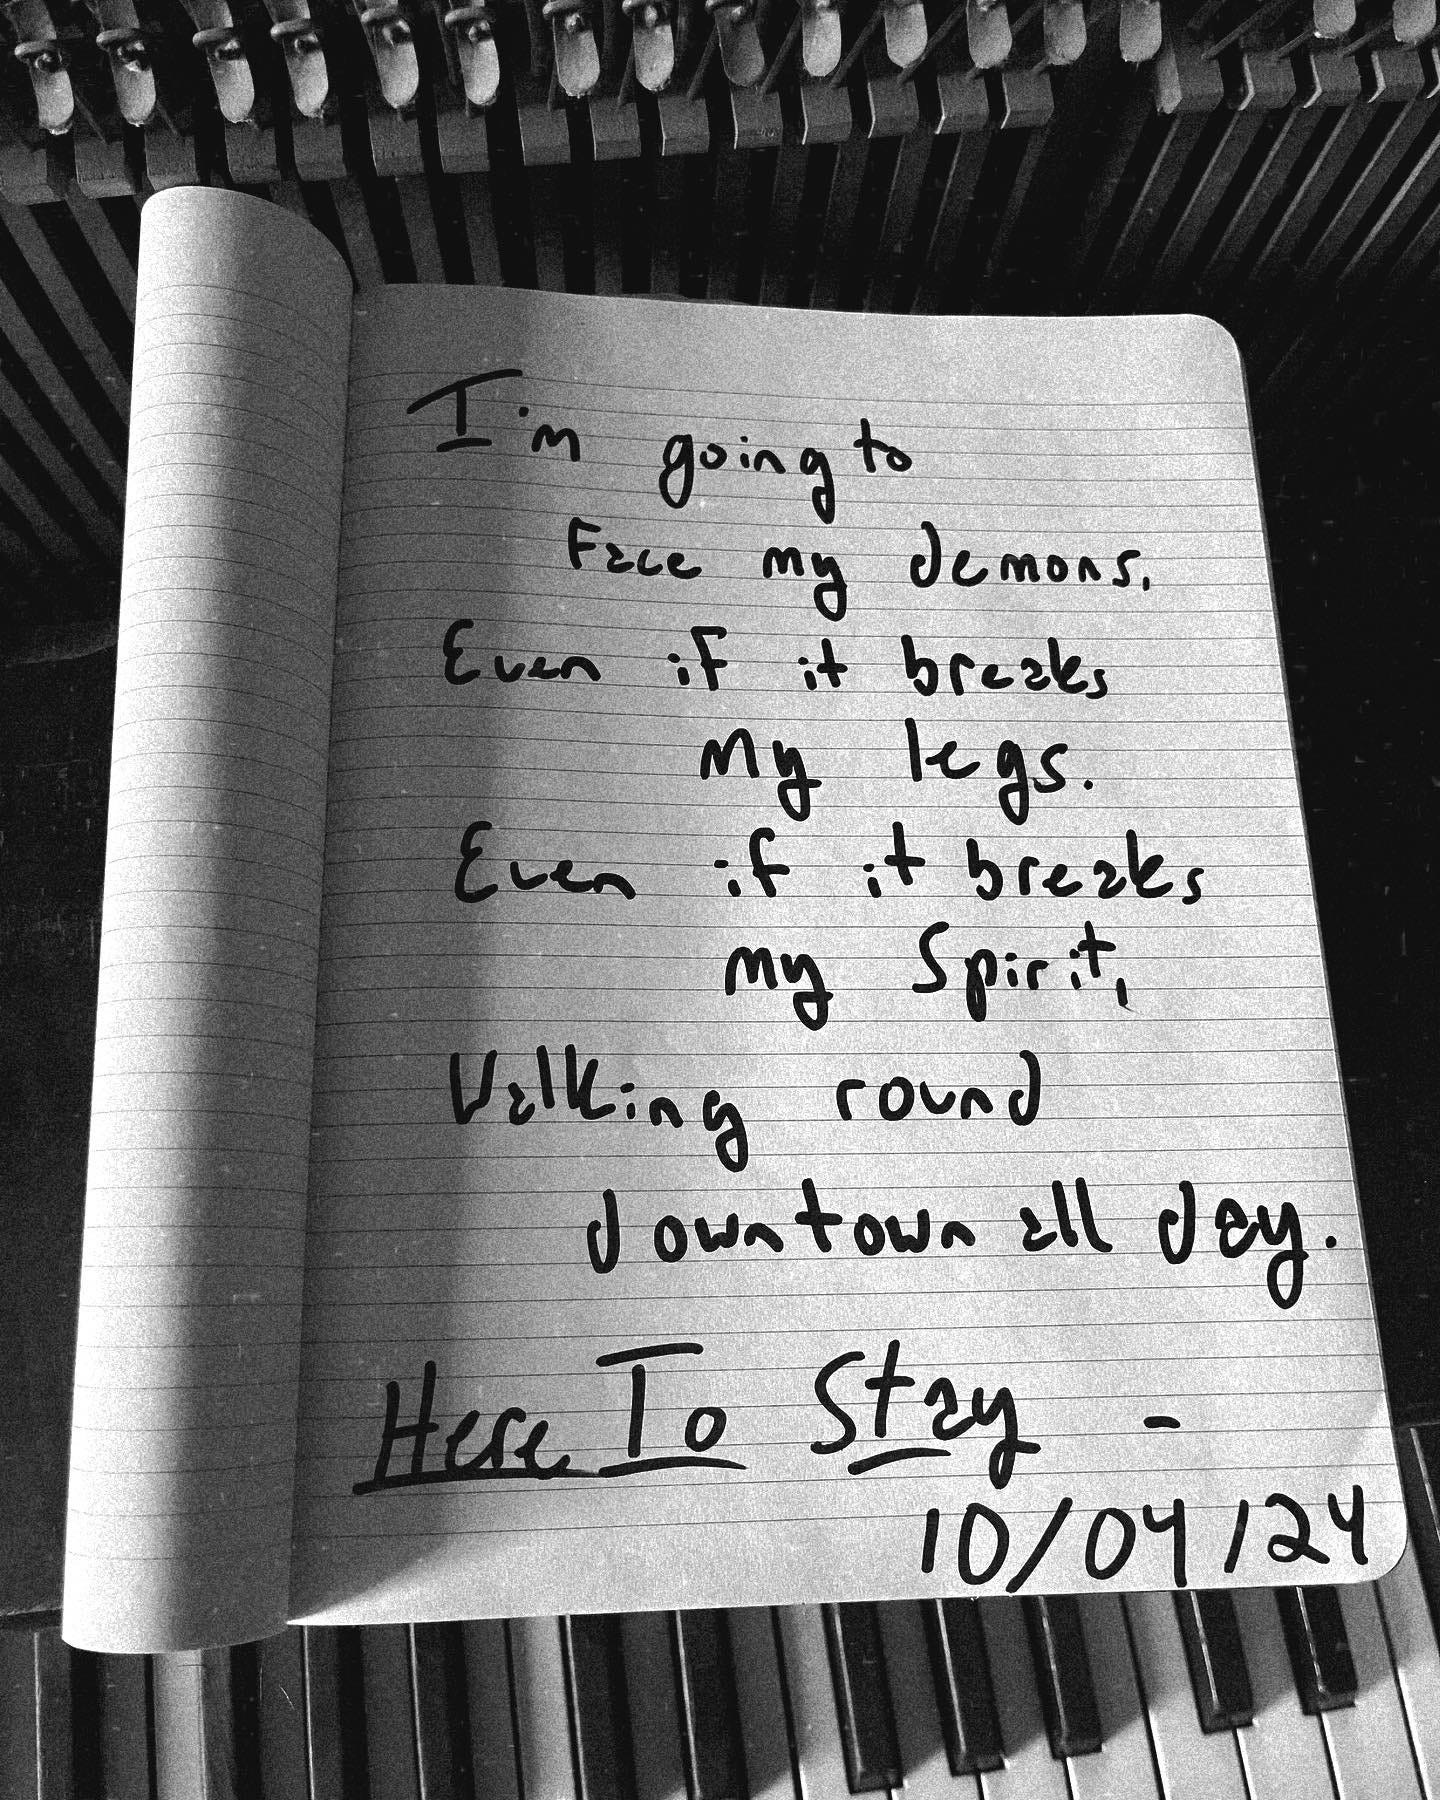 I'm going to
Face my demons,
Even if it breaks
My legs.
Even if it breaks
my Spirit,
Walking round
downtown all day.
Here To Stay -
10/04/24